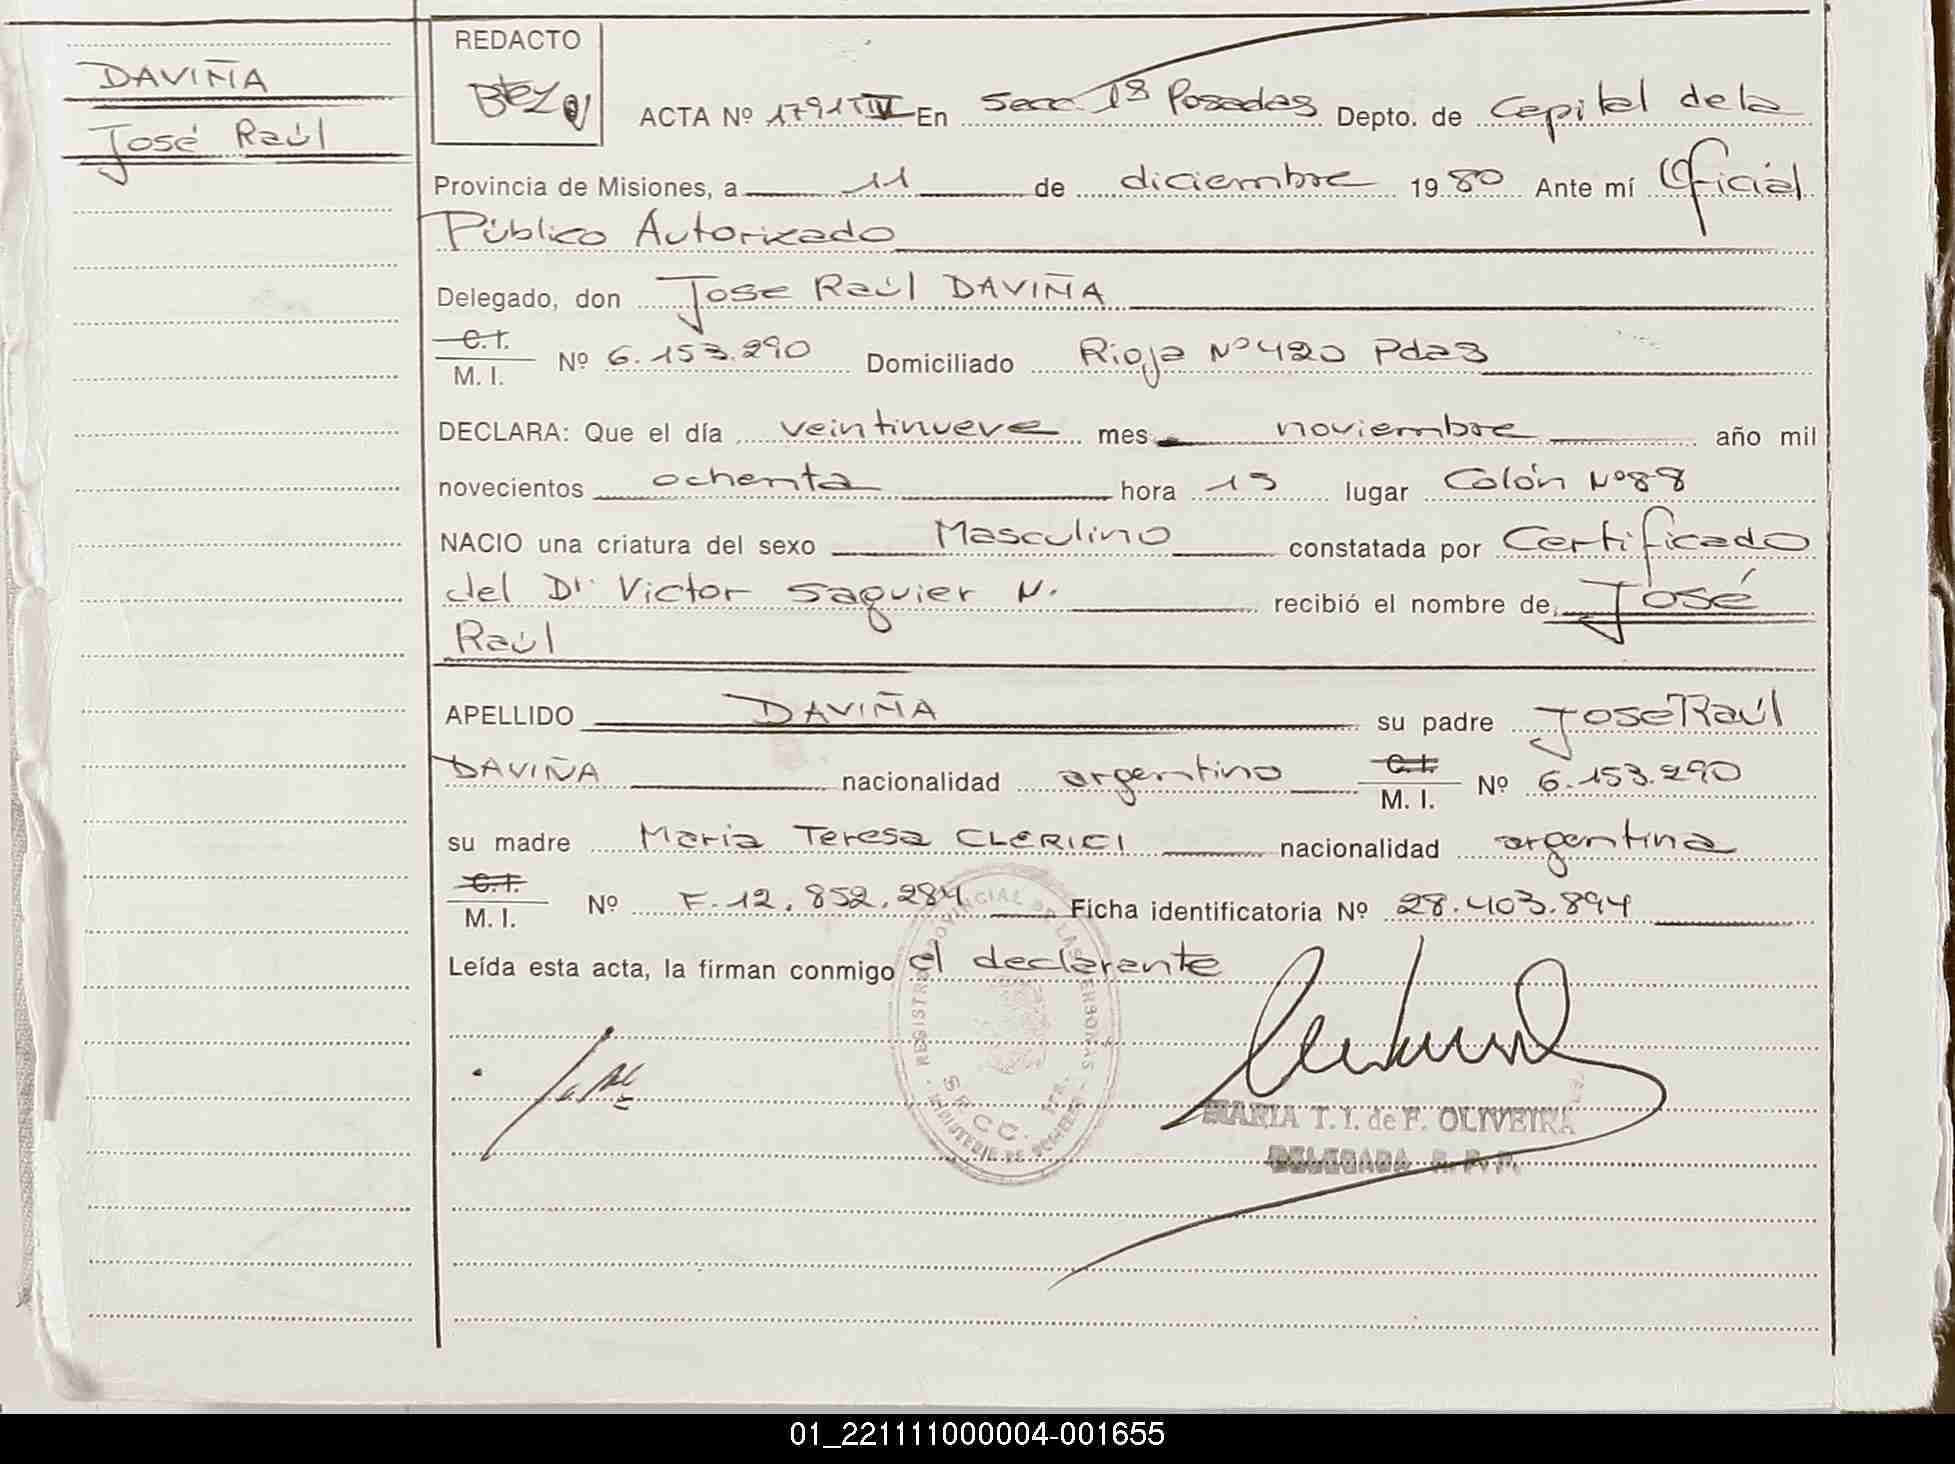 DAVIÑA
José Raúl
REDACTO
ACTA Nº 1791 T IV En Secc. 1ª Posadas Depto. de Capital de la
Provincia de Misiones, a 11 de diciembre 1980 Ante mí Oficial
Público Autorizado
Delegado, don Jose Raúl DAVIÑA
C. I.
M. I. Nº 6.153.290 Domiciliado Rioja Nº 420 Pdas
DECLARA: Que el día veintinueve mes noviembre año mil
novecientos ochenta hora 13 lugar Colón Nº 88
NACIO una criatura del sexo Masculino constatada por Certificado
del Dr Victor Saguier N. recibió el nombre de José
Raúl
APELLIDO DAVIÑA su padre Jose Raúl
DAVIÑA nacionalidad argentino C. I. M. I. Nº 6.153.290
su madre Maria Teresa CLERICI nacionalidad argentina
C. I.
M. I. Nº F. 12.852.284 Ficha identificatoria Nº 28.403.894
Leída esta acta, la firman conmigo el declarante
REGISTRO PROVINCIAL DE LAS PERSONAS
MINISTERIO DE
MARIA T. I. de F. OLIVEIRA
DELEGADA R. P. P.
01_221111000004-001655